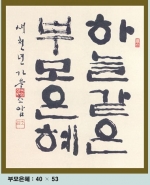 하늘같은
부모은혜
새천년 가을
부모은혜 : 40 × 53